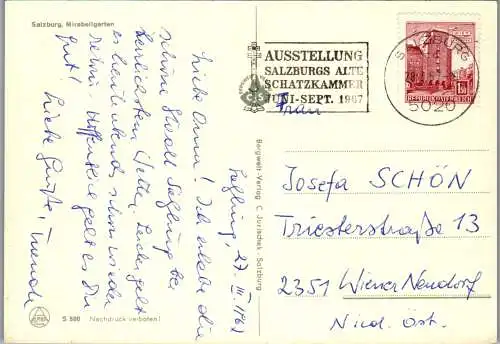 Salzburg, Mirabellgarten
Salzburg, 27. III. 1967
Liebe Anna! Ich erlebe die
schöne Stadt Salzburg bei
herrlichstem Wetter. Leider geht
es heute abends schon wieder
heim. Hoffentlich geht es Dir
gut!
Liebe Grüße,
S 580 Nachdruck verboten!
Bergwelt-Verlag C. Jurischek · Salzburg
AUSSTELLUNG
SALZBURGS ALTE
SCHATZKAMMER
JUNI-SEPT. 1967
SALZBURG
5020
REPUBLIK ÖSTERREICH
Frau
Josefa SCHÖN
Triesterstraße 13
2351 Wiener Neudorf
Nied. Öst.